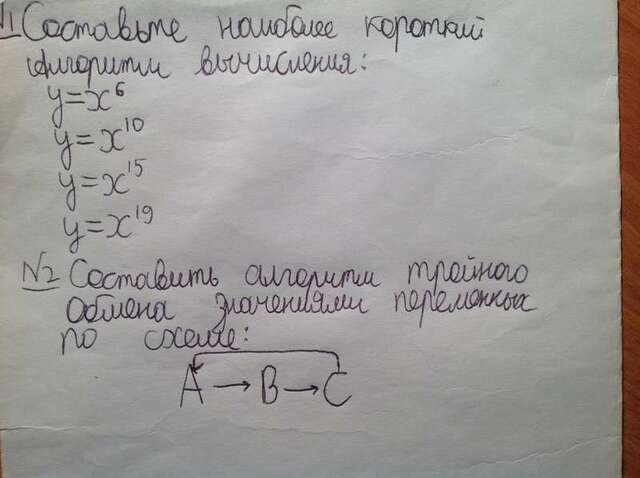 №1 Составьте наиболее короткий
алгоритм вычисления:
y=x⁶
y=x¹⁰
y=x¹⁵
y=x¹⁹
№2 Составить алгоритм тройного
обмена значениями переменных
по схеме:
A→B→C